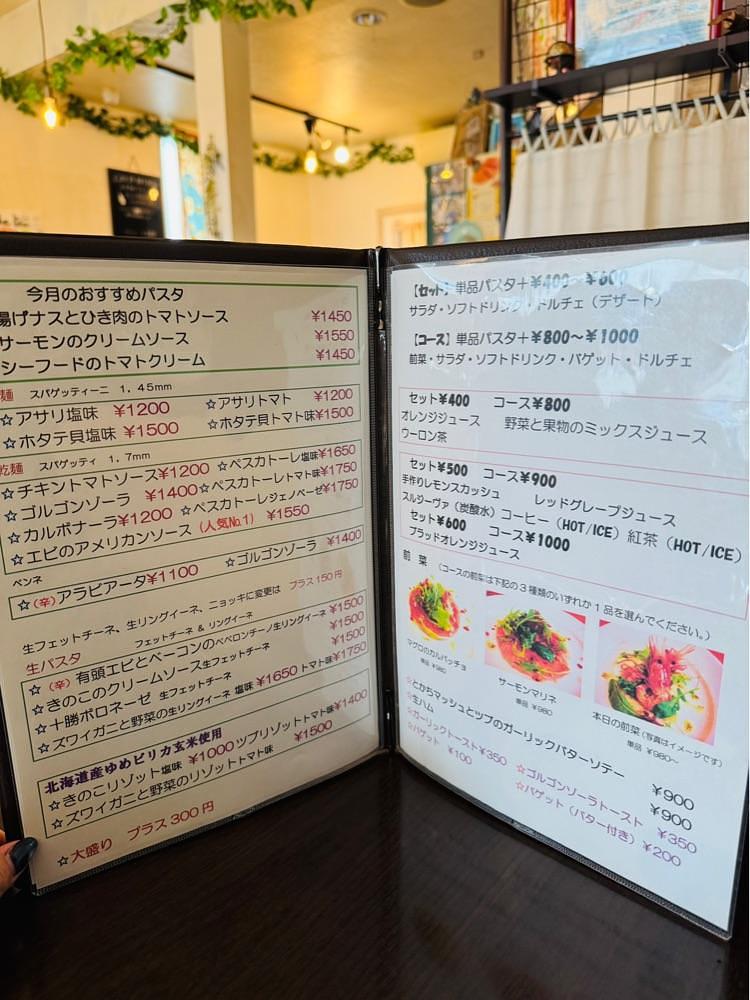 今月のおすすめパスタ
揚げナスとひき肉のトマトソース ¥1450
サーモンのクリームソース ¥1550
シーフードのトマトクリーム ¥1450
麺 スパゲッティーニ 1.45mm
☆アサリ塩味 ¥1200 ☆アサリトマト ¥1200
☆ホタテ貝塩味 ¥1500 ☆ホタテ貝トマト味¥1500
乾麺 スパゲッティ 1.7mm
☆チキントマトソース¥1200 ☆ペスカトーレ塩味¥1650
☆ゴルゴンゾーラ ¥1400 ☆ペスカトーレトマト味¥1750
☆カルボナーラ¥1200 ☆ペスカトーレジェノベーゼ¥1750
☆エビのアメリカンソース (人気No.1) ¥1550
ペンネ
☆(辛)アラビアータ¥1100 ☆ゴルゴンゾーラ ¥1400
生フェットチーネ、生リングイーネ、ニョッキに変更は プラス150円
生パスタ フェットチーネ & リングイーネ
☆(辛)有頭エビとベーコンのペペロンチーノ生リングイーネ ¥1500
☆きのこのクリームソース生フェットチーネ ¥1500
☆十勝ボロネーゼ 生フェットチーネ ¥1500
☆ズワイガニと野菜の生リングイーネ 塩味 ¥1650 トマト味¥1750
北海道産ゆめピリカ玄米使用
☆きのこリゾット塩味 ¥1000 ツブリゾットトマト味¥1400
☆ズワイガニと野菜のリゾットトマト味 ¥1500
☆大盛り プラス300円
【セット】単品パスタ+¥400～¥600
サラダ・ソフトドリンク・ドルチェ（デザート）
【コース】単品パスタ+¥800～¥1000
前菜・サラダ・ソフトドリンク・バゲット・ドルチェ
セット¥400 コース¥800
オレンジジュース 野菜と果物のミックスジュース
ウーロン茶
セット¥500 コース¥900
手作りレモンスカッシュ レッドグレープジュース
スルジーヴァ（炭酸水）コーヒー（HOT/ICE）紅茶（HOT/ICE）
セット¥600 コース¥1000
ブラッドオレンジジュース
前菜 （コースの前菜は下記の3種類のいずれか1品を選んでください。）
マグロのカルパッチョ
単品 ¥980
サーモンマリネ
単品 ¥980
本日の前菜(写真はイメージです)
単品 ¥980～
☆とかちマッシュとツブのガーリックバターソテー ¥900
☆生ハム ¥900
☆ガーリックトースト¥350 ☆ゴルゴンゾーラトースト ¥350
☆バゲット ¥100 ☆バゲット（バター付き）¥200